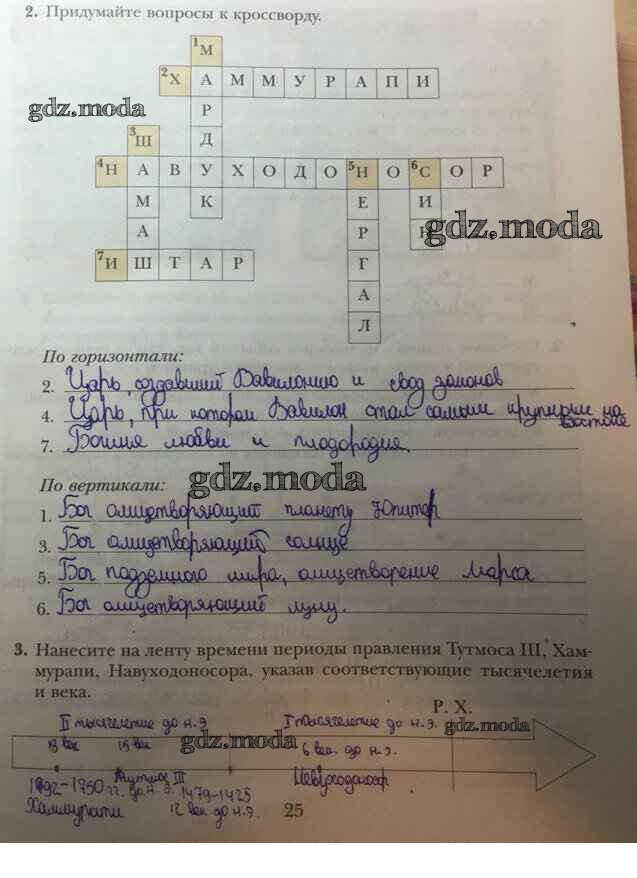 2. Придумайте вопросы к кроссворду.
1М
2ХАММУРАПИ
Р
gdz.moda
3Ш Д
4НАВУХОДО5НО6СОР
М К Е И
А Р Н
gdz.moda
7ИШТАР Г
А
Л
По горизонтали:
2. Царь, создавший Вавилонию и свод законов
4. Царь, при котором Вавилон стал самым крупным на
востоке
7. Богиня любви и плодородия.
gdz.moda
По вертикали:
1. Бог олицетворяющий планету Юпитер
3. Бог олицетворяющий солнце
5. Бог подземного мира, олицетворение Марса
6. Бог олицетворяющий луну.
3. Нанесите на ленту времени периоды правления Тутмоса III, Хам-
мурапи, Навуходоносора, указав соответствующие тысячелетия
и века.
Р. Х.
II тысячелетие до н.э I тысячелетие до н.э.
gdz.moda
18 век 15 век 6 век. до н.э.
gdz.moda
1792-1750 гг. до н.э. Тутмос III 1479-1425
Хаммурапи 12 век до н.э.
25